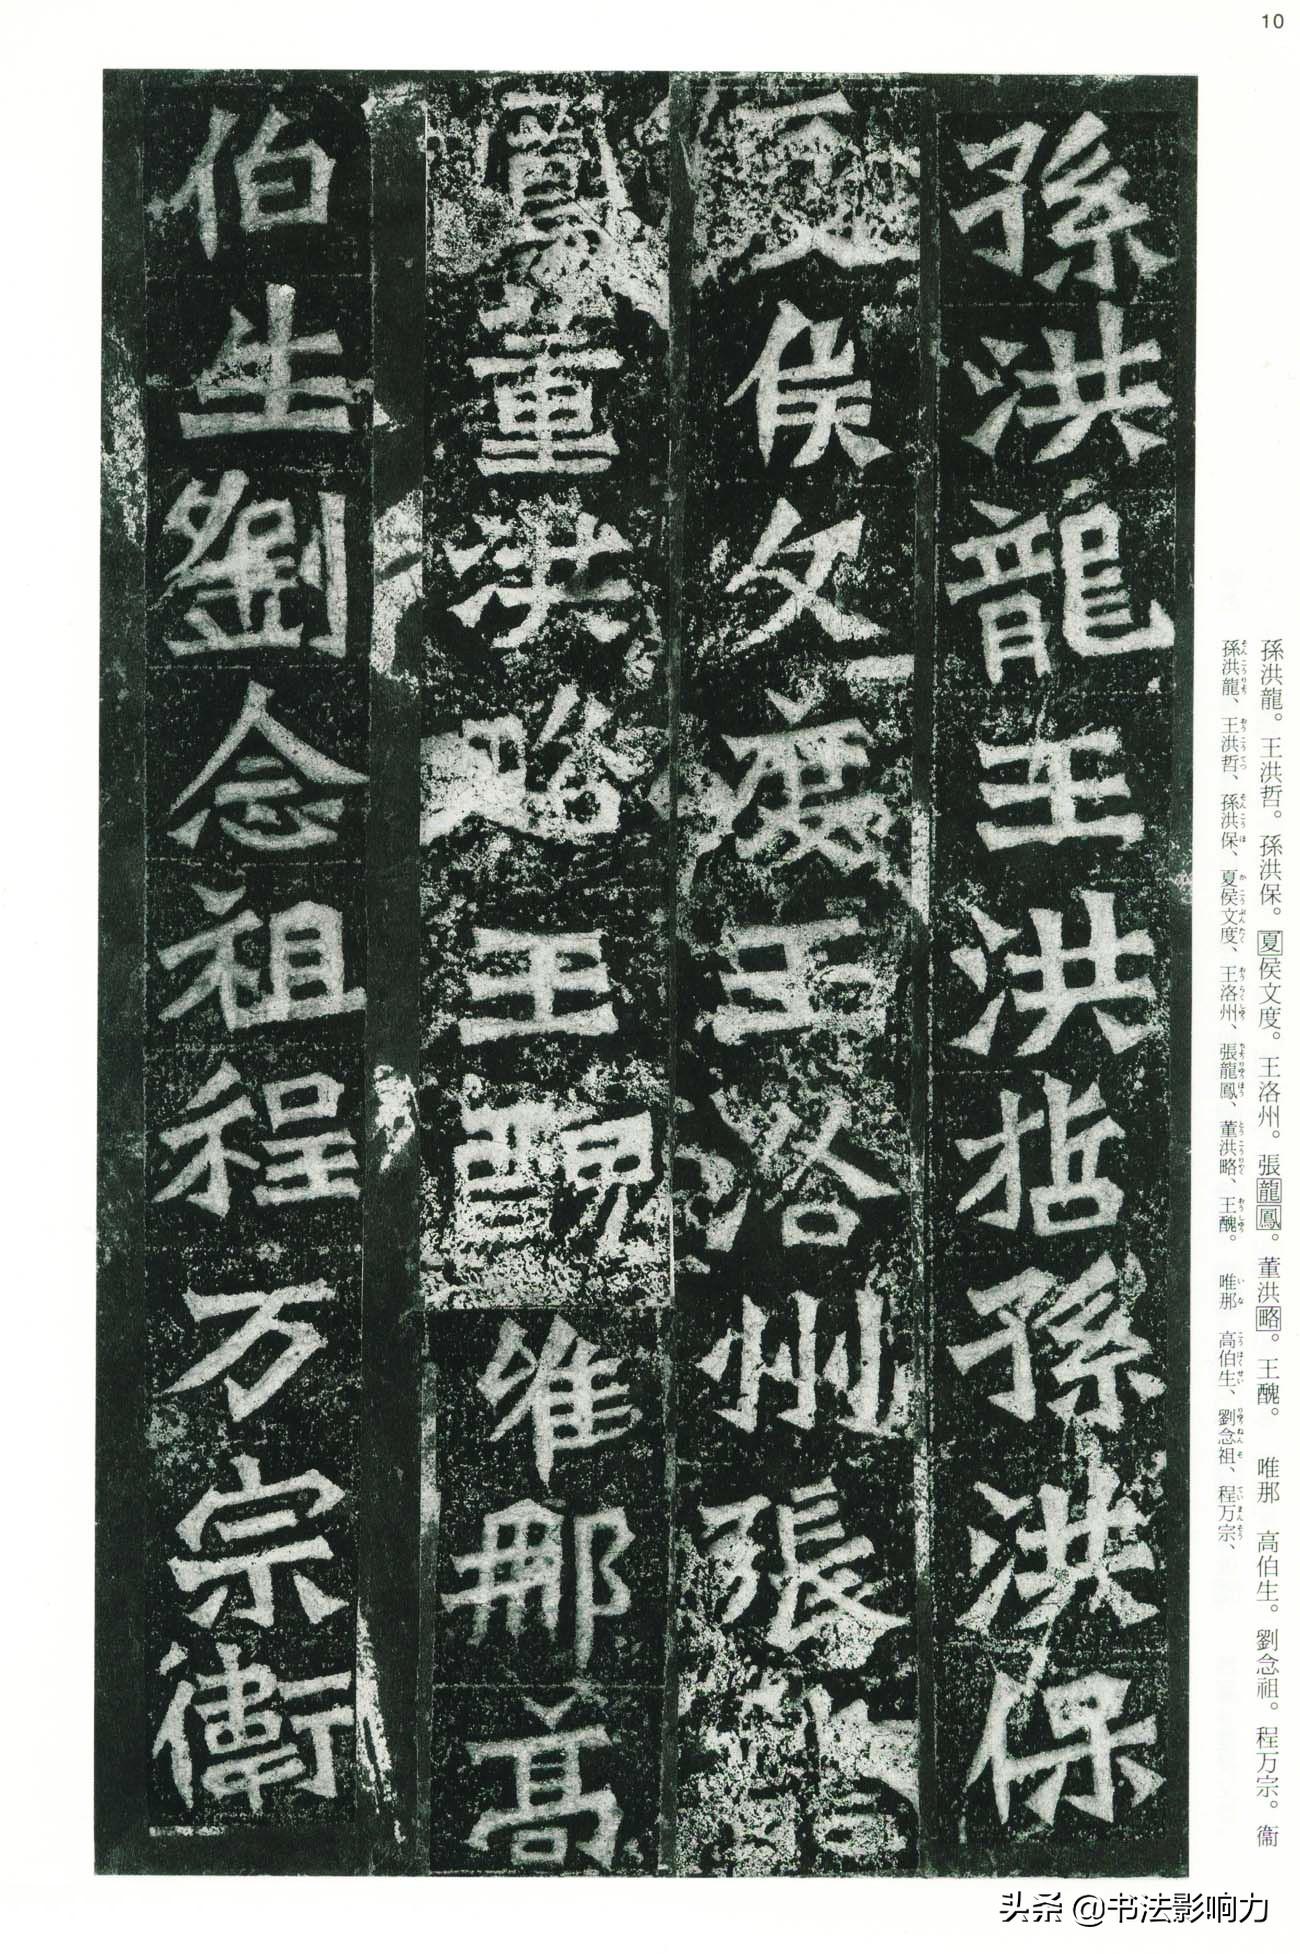 10
孫洪龍王洪哲孫洪保
夏侯文度王洛州張龍
鳳董洪略王醜唯那高
伯生劉念祖程万宗衛
孫洪龍。王洪哲。孫洪保。夏侯文度。王洛州。張龍鳳。董洪略。王醜。 唯那 高伯生。劉念祖。程万宗。衞
孫洪龍、王洪哲、孫洪保、夏侯文度、王洛州、張龍鳳、董洪略、王醜。 唯那 高伯生、劉念祖、程万宗、
头条 @书法影响力